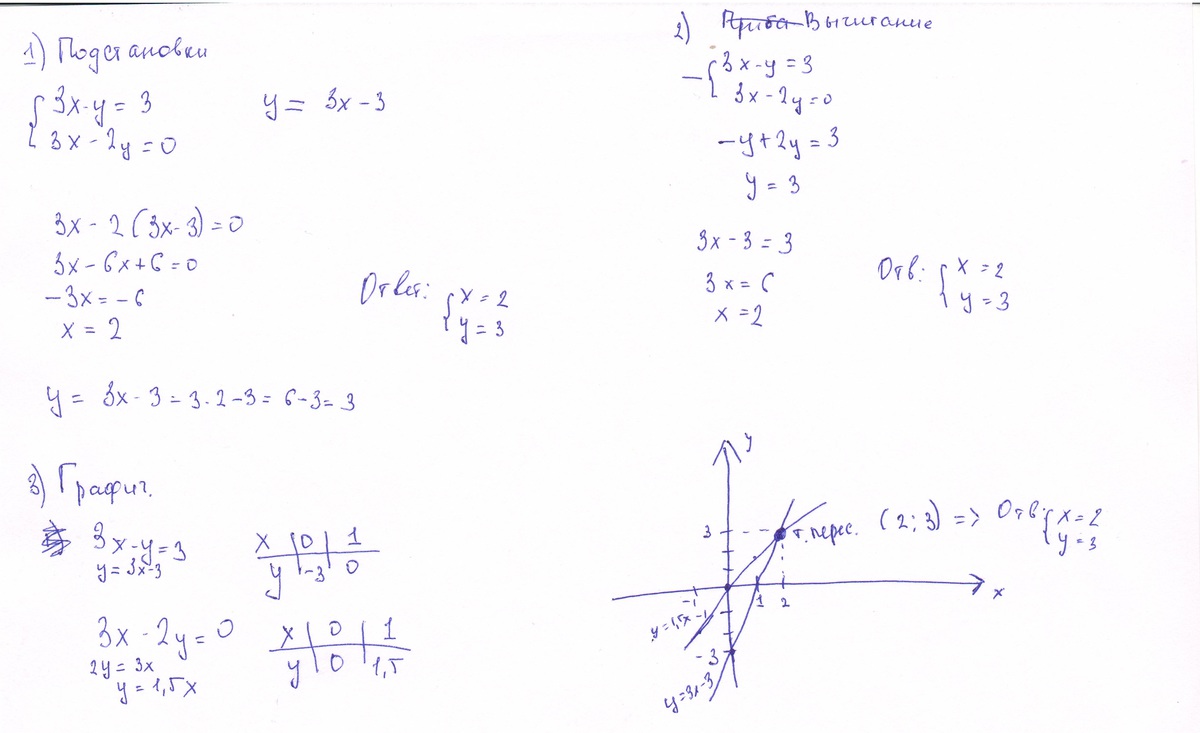 1) Подстановки
{ 3x-y = 3
3x - 2y = 0
y = 3x - 3
3x - 2(3x-3) = 0
3x - 6x + 6 = 0
-3x = -6
x = 2
Ответ: { x = 2
y = 3
y = 3x - 3 = 3·2-3 = 6-3 = 3
2) Вычитание
- { 3x-y = 3
3x - 2y = 0
-y + 2y = 3
y = 3
3x - 3 = 3
3x = 6
x = 2
Отв: { x = 2
y = 3
3) Графич.
3x-y = 3
y = 3x-3
x | 0 | 1
y | -3 | 0
3x - 2y = 0
2y = 3x
y = 1,5x
x | 0 | 1
y | 0 | 1,5
y
3
т. перес. (2; 3) => Отв: { x = 2
y = 3
-1 1 2 x
y = 1,5x -1
-3
y = 3x-3